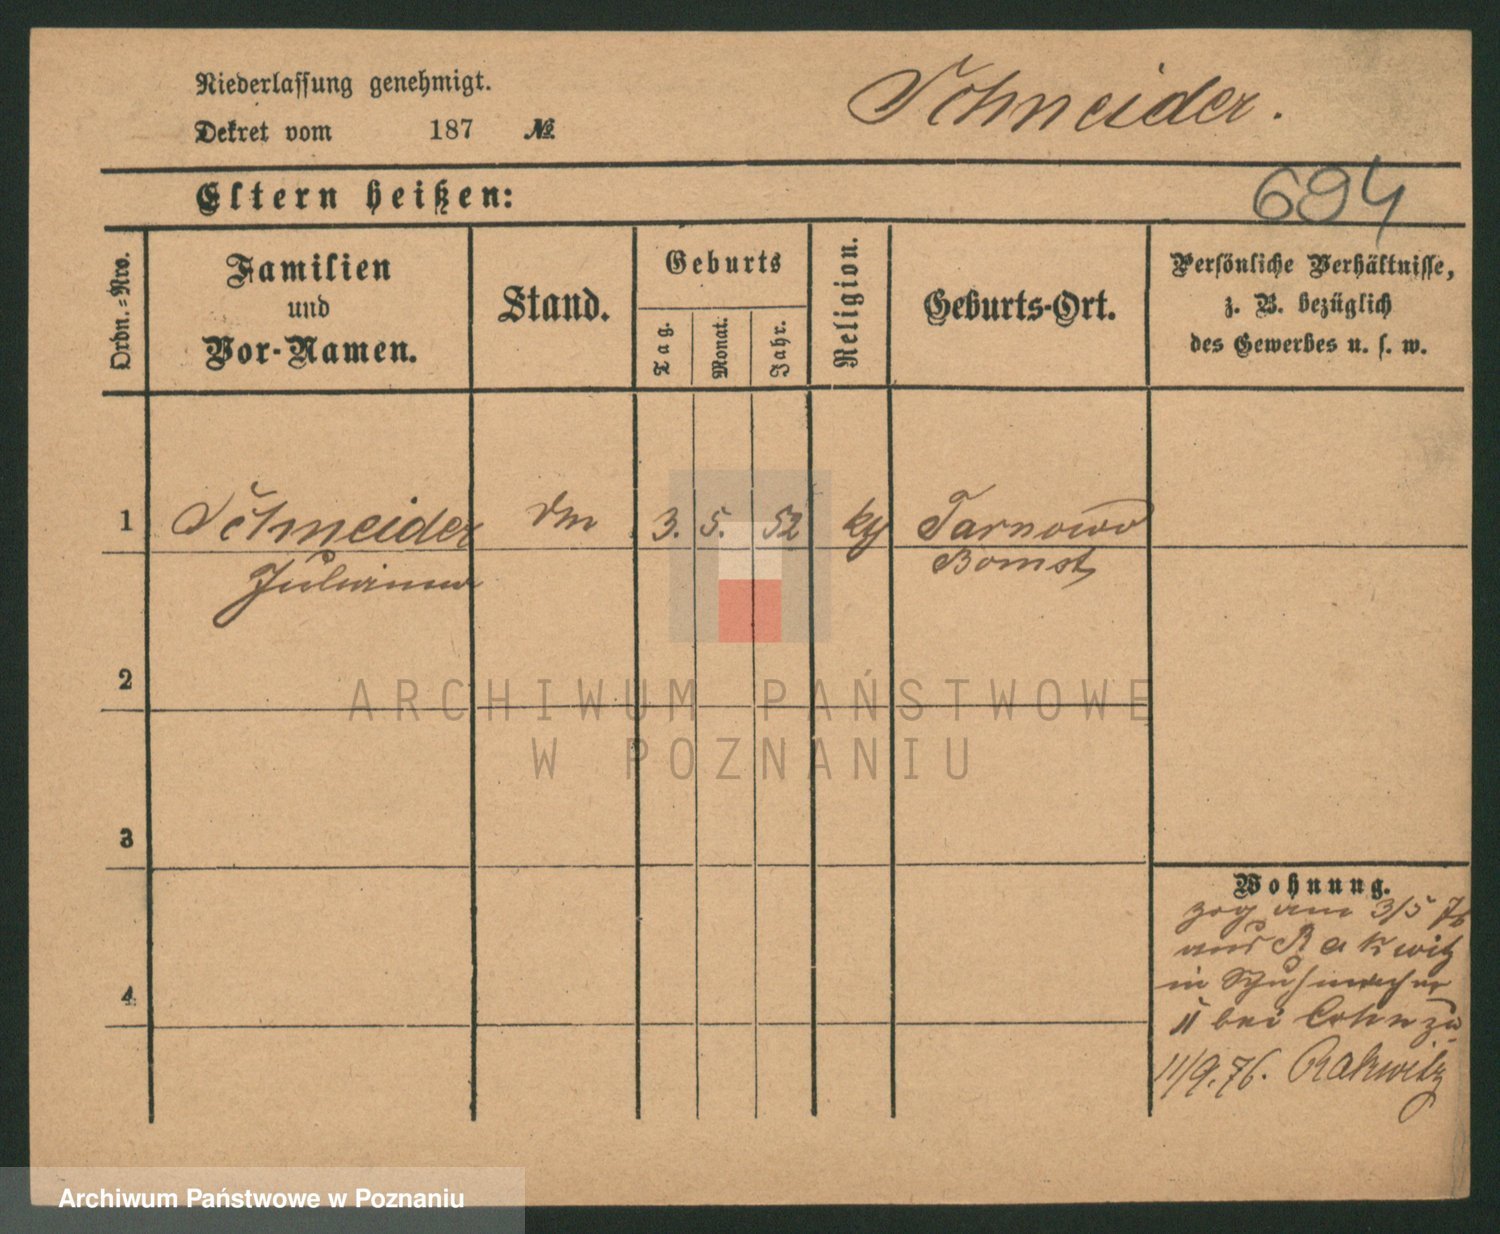 Niederlassung genehmigt.
Schneider.
Dekret vom 187 №
694
Eltern heißen:
Ordn.-Nro.
Familien
und
Vor-Namen.
Stand.
Geburts
Tag.
Monat.
Jahr.
Religion.
Geburts-Ort.
Persönliche Verhältnisse,
z. B. bezüglich
des Gewerbes u. s. w.
1 Schneider 3. 5. 52 Tarnowo
Julianna Bomst
2
3
4
ARCHIWUM PAŃSTWOWE
W POZNANIU
Wohnung.
zog am 3/5 76
aus Rakwitz
in
11 bei Cohn
11/9.76. Rakwitz
Archiwum Państwowe w Poznaniu